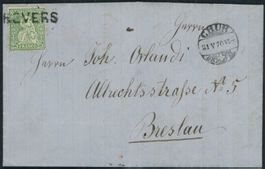 BEVERS
CHUR
Herrn Joh. Orlandi
Altrechtsstrasse No 5
Breslau